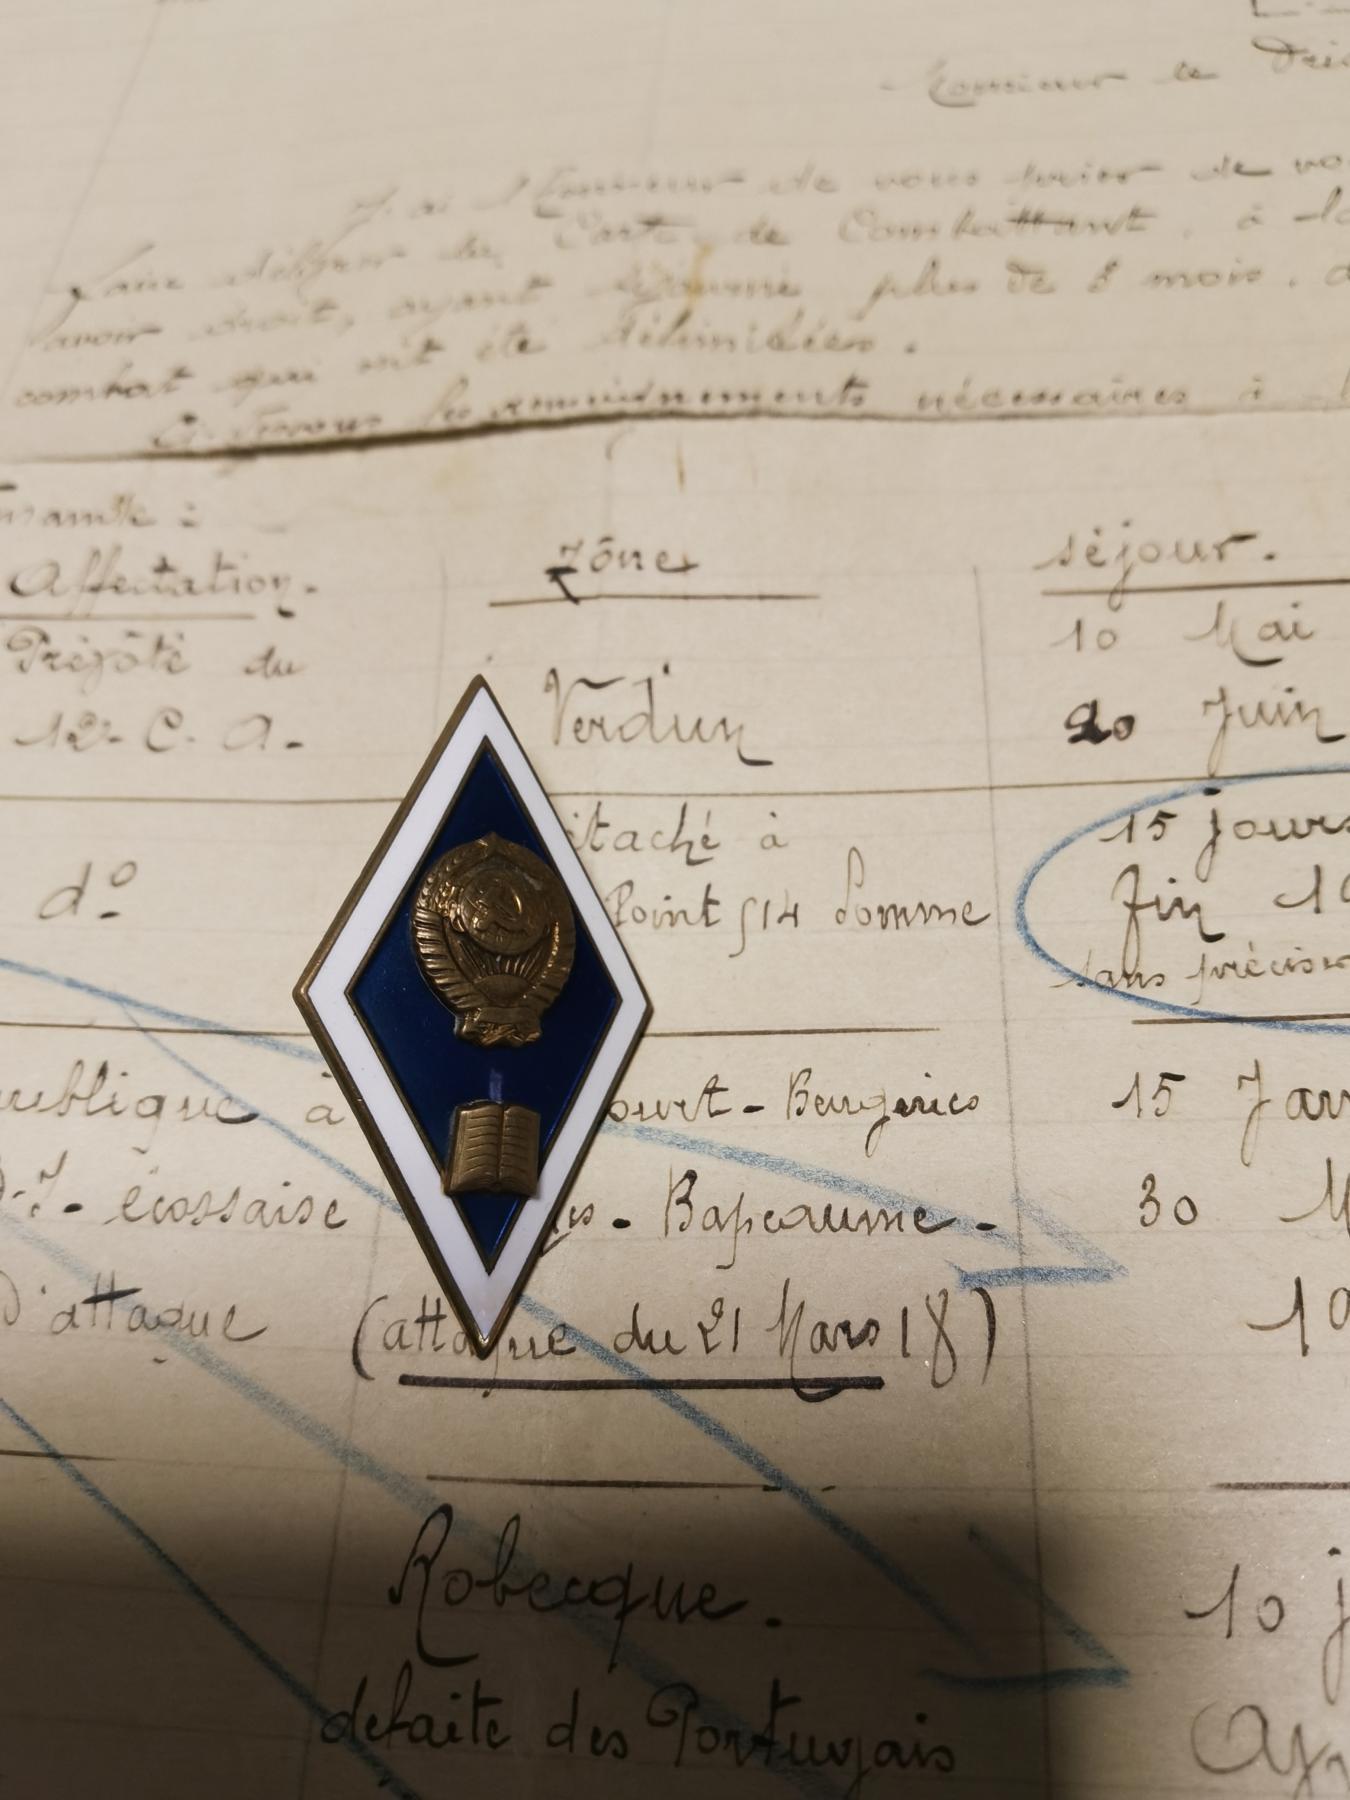 Monsieur le
J'ai l'honneur de vous prier de
faire délivrer la Carte de Combattant, à
avoir droit, ayant séjourné plus de 3 mois,
combat qui ont été délimitées.
Ci-dessous les renseignements nécessaires à
Affectation. Zône séjour.
Prévôté du 10 Mai
12e C. A. Verdun 20 Juin
étaché à 15 jours
dº Point 514 Somme fin 19
sans précis
ublique à ourt - Beugnies 15 Jan
écossaise - Bapaume - 30 M
D'attaque (attaque du 21 Mars 18) 19
Robecque. 10 j
défaite des Portugais